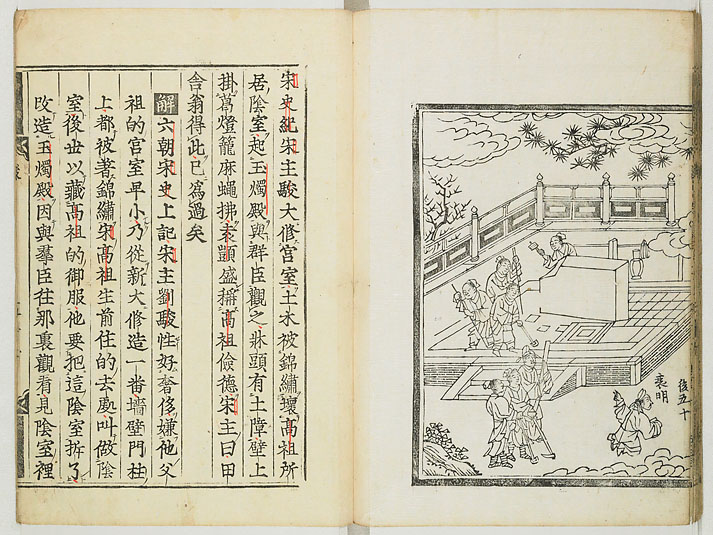 後五十
明
宋史紀宋主駿大修宮室土木被錦繡壞高祖所
居陰室起玉燭殿與群臣觀之牀頭有土障壁上
掛葛燈籠麻蠅拂袁顗盛稱高祖儉德宋主曰田
舍翁得此已為過矣
解六朝宋史上記宋主劉駿性好奢侈嫌他父
祖的宮室卑小乃從新大修造一番墻壁門柱
上都被著錦繡宋高祖生前住的去處叫做陰
室後世以藏高祖的御服他要把這陰室拆了
改造玉燭殿因與羣臣往那裏觀看見陰室裡